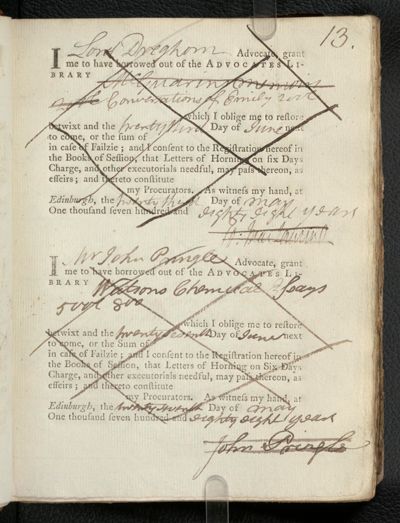 13.
I Lord Dreghorn Advocate, grant
me to have borrowed out of the ADVOCATES LI-
BRARY
Conversations of Emily 2 vol
which I oblige me to restore
betwixt and the twenty third Day of June next
to come, or the sum of
in case of Failzie ; and I consent to the Registration hereof in
the Books of Session, that Letters of Horning on six Days
Charge, and other executorials needful, may pass thereon, as
effeirs ; and thereto constitute
my Procurators. As witness my hand, at
Edinburgh, the twenty third Day of may
One thousand seven hundred and eighty eight years
I Mr John Pringle Advocate, grant
me to have borrowed out of the ADVOCATES LI-
BRARY Watsons Chemical Essays
5 vol 8vo
which I oblige me to restore
betwixt and the twenty seventh Day of June next
to come, or the Sum of
in case of Failzie ; and I consent to the Registration hereof in
the Books of Session, that Letters of Horning on Six Days
Charge, and other executorials needful, may pass thereon, as
effeirs ; and thereto constitute
my Procurators. As witness my hand, at
Edinburgh, the twenty seventh Day of may
One thousand seven hundred and eighty eight years
John Pringle